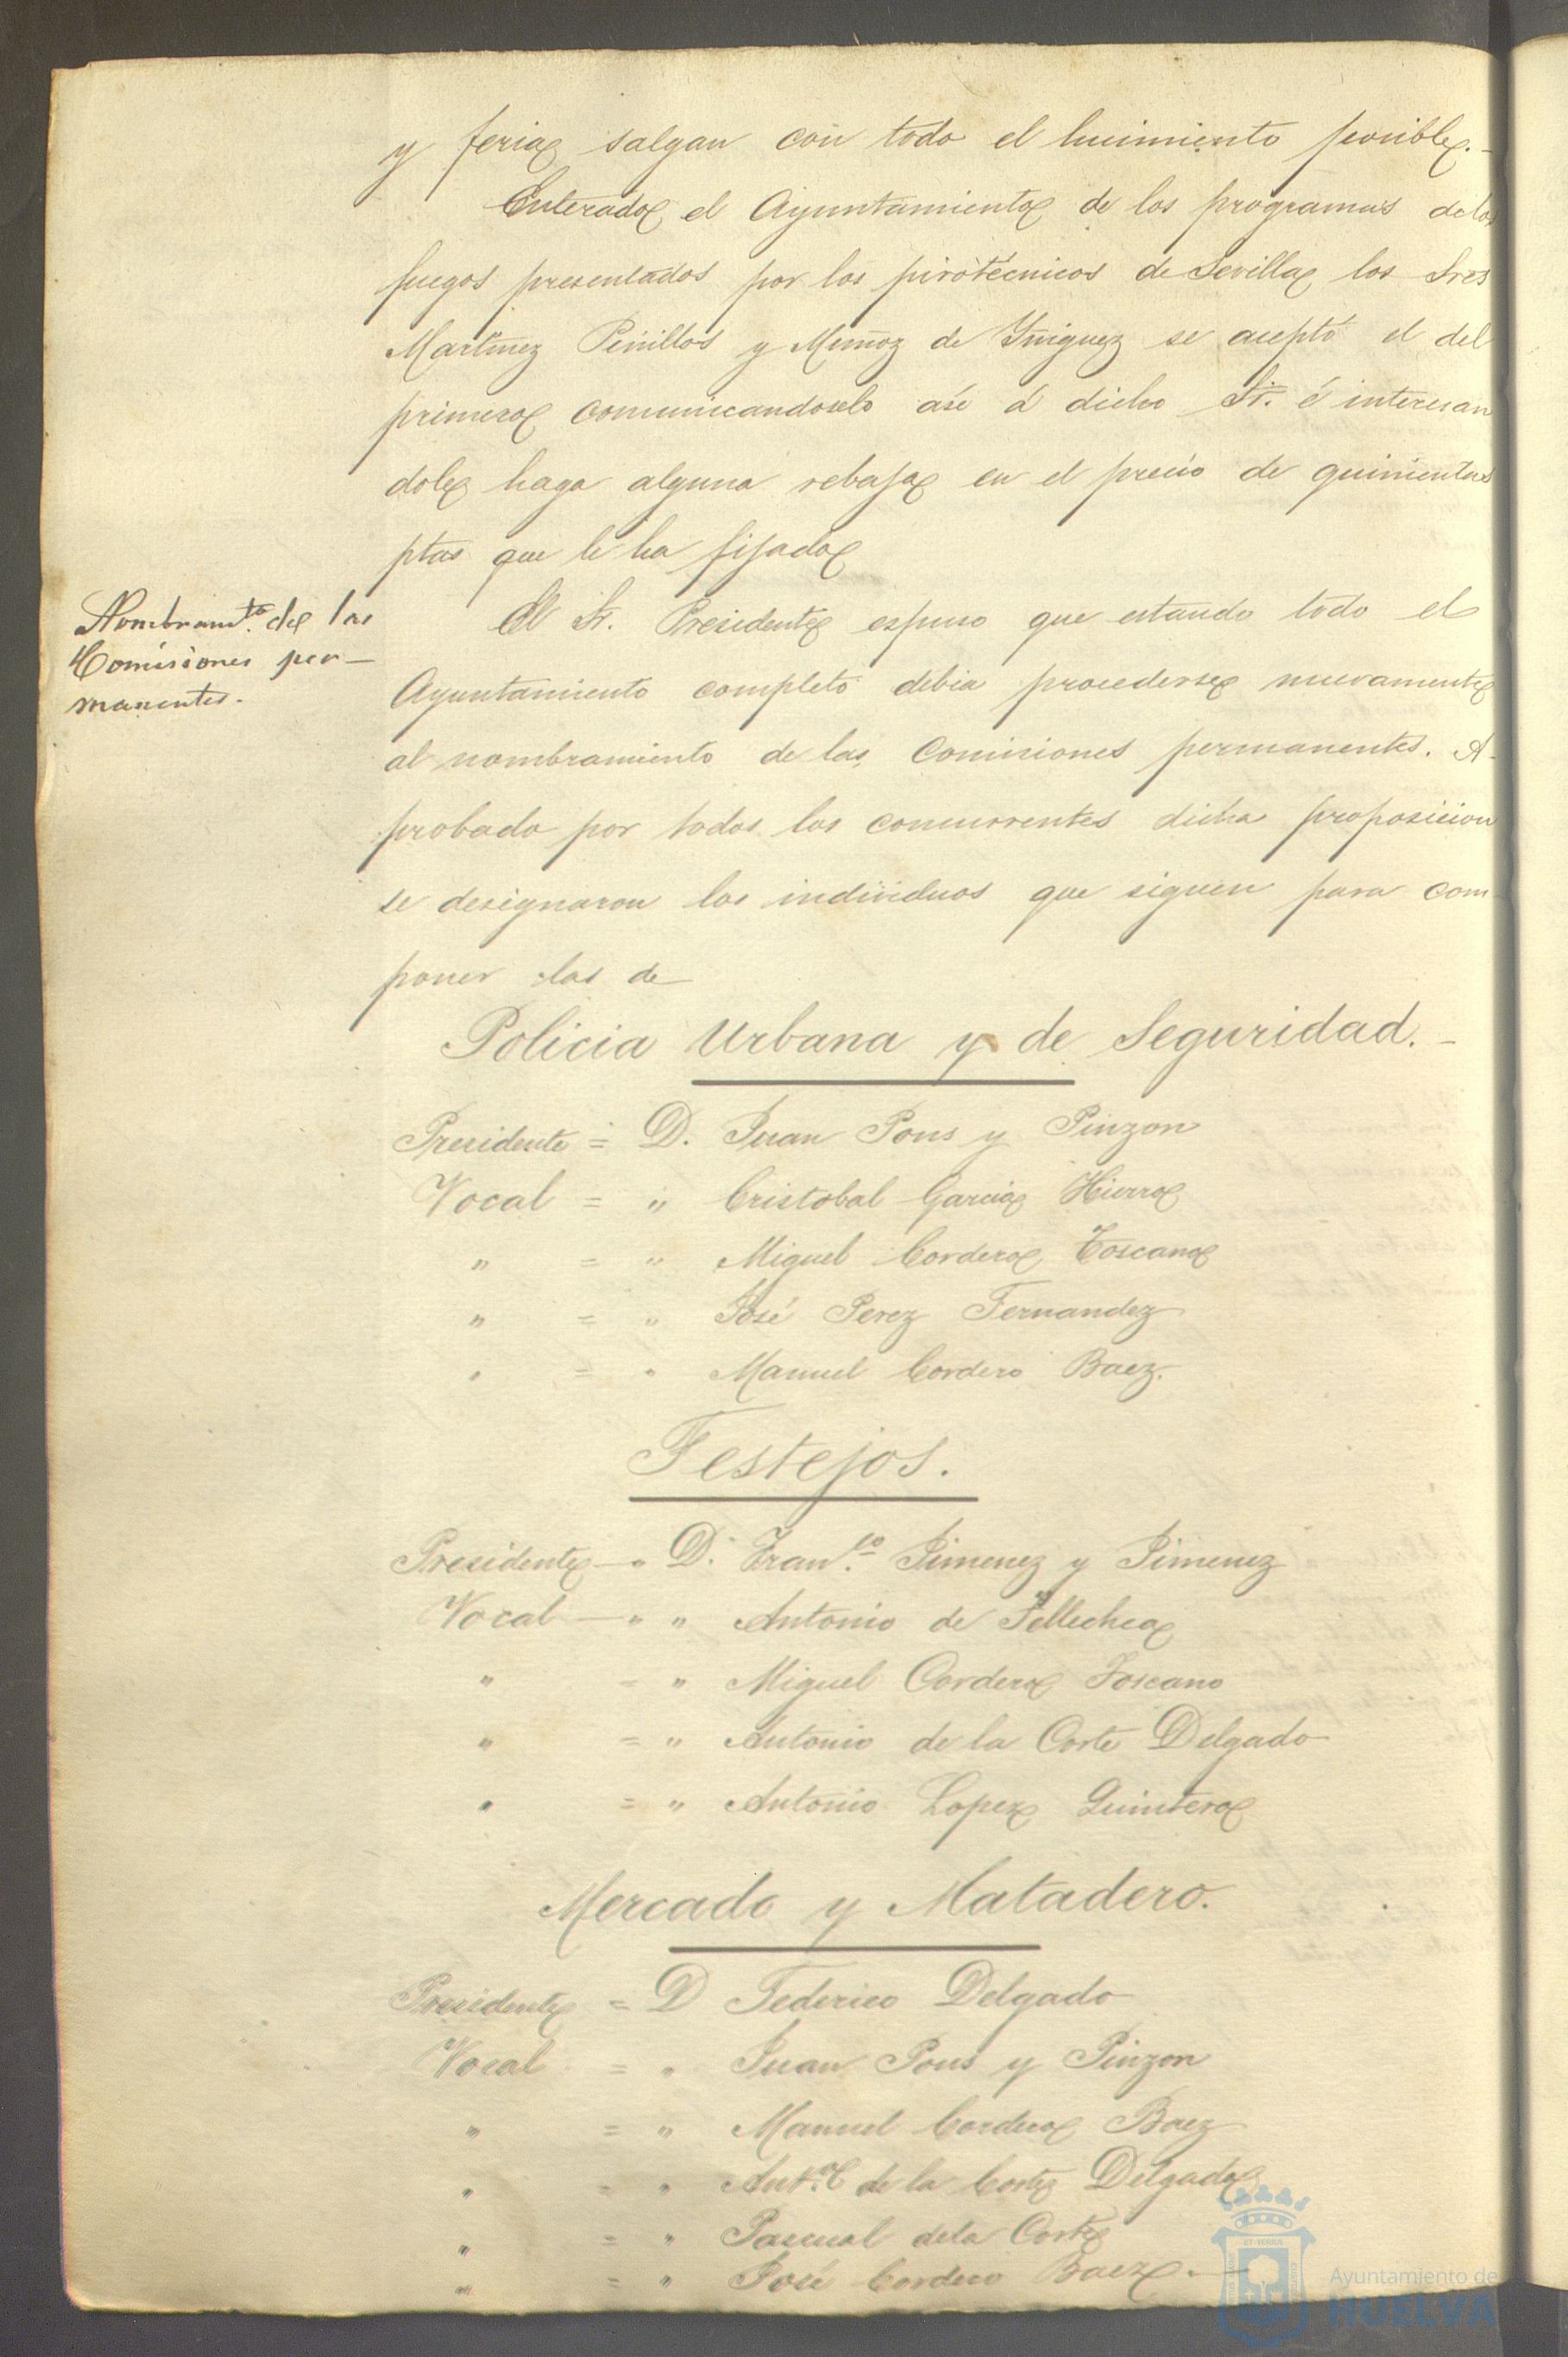 y feria salgan con todo el lucimiento posible.
Enterado el Ayuntamiento de los programas de los
fuegos presentados por los pirotécnicos de Sevilla los Sres
Martinez Pinillos y Muñoz de Yñiguez se aceptó el del
primero comunicandoselo asi á dicho Sr. é interesan
dole haga alguna rebaja en el precio de quinientas
ptas que le ha fijado
Nombramto. de las
Comisiones per-
manentes.
El Sr. Presidente espuso que estando todo el
Ayuntamiento completo debia procederse nuevamente
al nombramiento de las Comisiones permanentes. A-
probado por todos los concurrentes dicha proposicion
se designaron los individuos que siguen para com-
poner las de
Policia Urbana y de Seguridad.-
Presidente = D. Juan Pons y Pinzon
Vocal = " Cristobal Garcia Hierro
" = " Miguel Cordero Toscano
" = " José Perez Fernandez
" = " Manuel Cordero Baez.
Festejos.
Presidente - " D. Franco. Jimenez y Jimenez
Vocal - " " Antonio de Tellechea
" = " Miguel Cordero Toscano
" = " Antonio de la Corte Delgado
" = " Antonio Lopez Quintero
Mercado y Matadero.
Presidente = D Federico Delgado
Vocal = " Juan Pons y Pinzon
" = " Manuel Cordero Baez
" = " Anto. de la Corte Delgado
" = " Pascual de la Corte
" = " José Cordero Baez.-
Ayuntamiento de
HUELVA